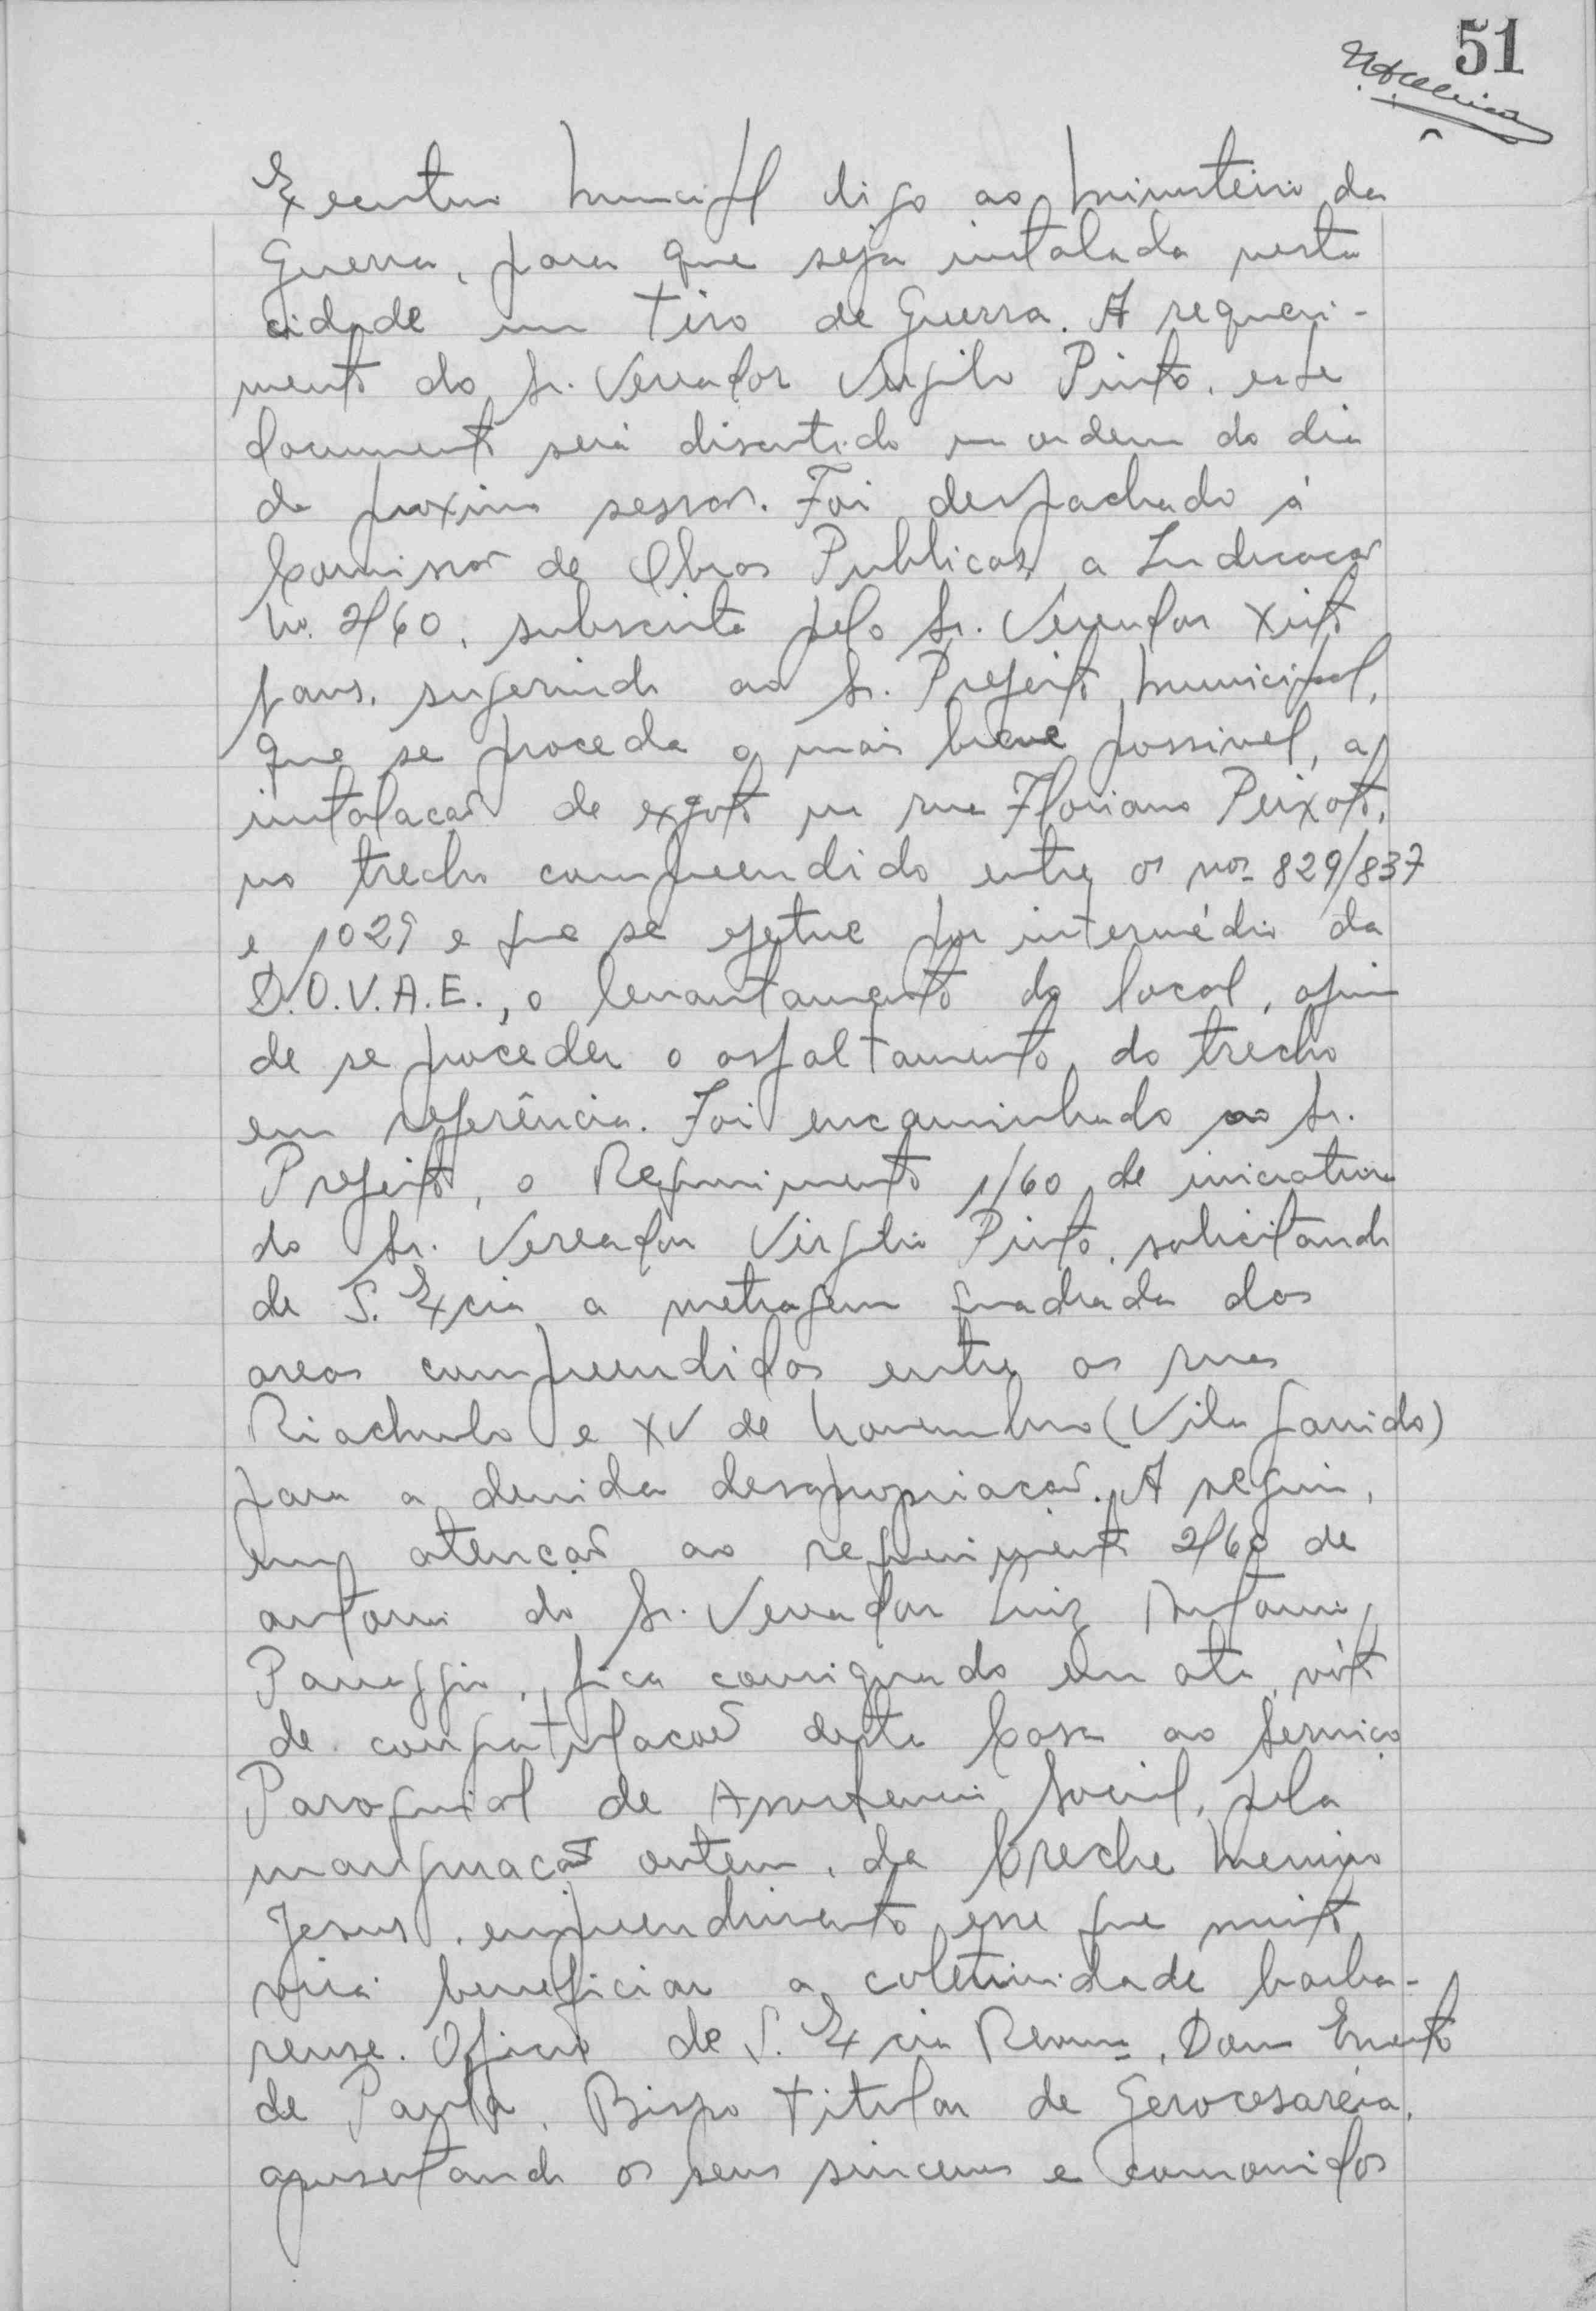 51
Executivo Municipal digo ao Ministério da
Guerra, para que seja instalada nesta
cidade um Tiro de Guerra. A requeri-
mento do Sr. Vereador Virgilio Pinto, este
documento será discutido na ordem do dia
da proxima sessão. Foi despachado á
Comissão de Obras Publicas, a Indicação
No. 2/60, subscrita pelo Sr. Vereador
sugerindo ao Sr. Prefeito Municipal,
que se proceda o mais breve possivel, a
instalação de exgoto na rua Floriano Peixoto,
no trecho compreendido entre os nos. 829/837
e 1029 e que se efetue por intermédio da
D.O.V.A.E., o levantamento do local, afim
de se proceder o asfaltamento do trecho
em referência. Foi encaminhado ao Sr.
Prefeito, o Requerimento 1/60 de iniciativa
do Sr. Vereador Virgilio Pinto, solicitando
de S. Excia a metragem quadrada das
areas compreendidas entre as ruas
Riachuelo e XV de Novembro (Vila Garrido)
para a devida desapropriação. A seguir,
em atenção ao requerimento 2/60 de
autoria do Sr. Vereador Luiz Antonio
Panaggio, fica consignado em ata, voto
de congratulação desta Casa ao Serviço
Paroquial de Assistencia Social, pela
inauguração ontem, da Creche Menino
Jesus, empreendimento esse que muito
virá beneficiar a coletividade barba-
rense. Oficio de S. Excia Revma. Dom Ernesto
de Paula, Bispo Titular de Gerocesaréia,
apresentando os seus sinceros e comovidos